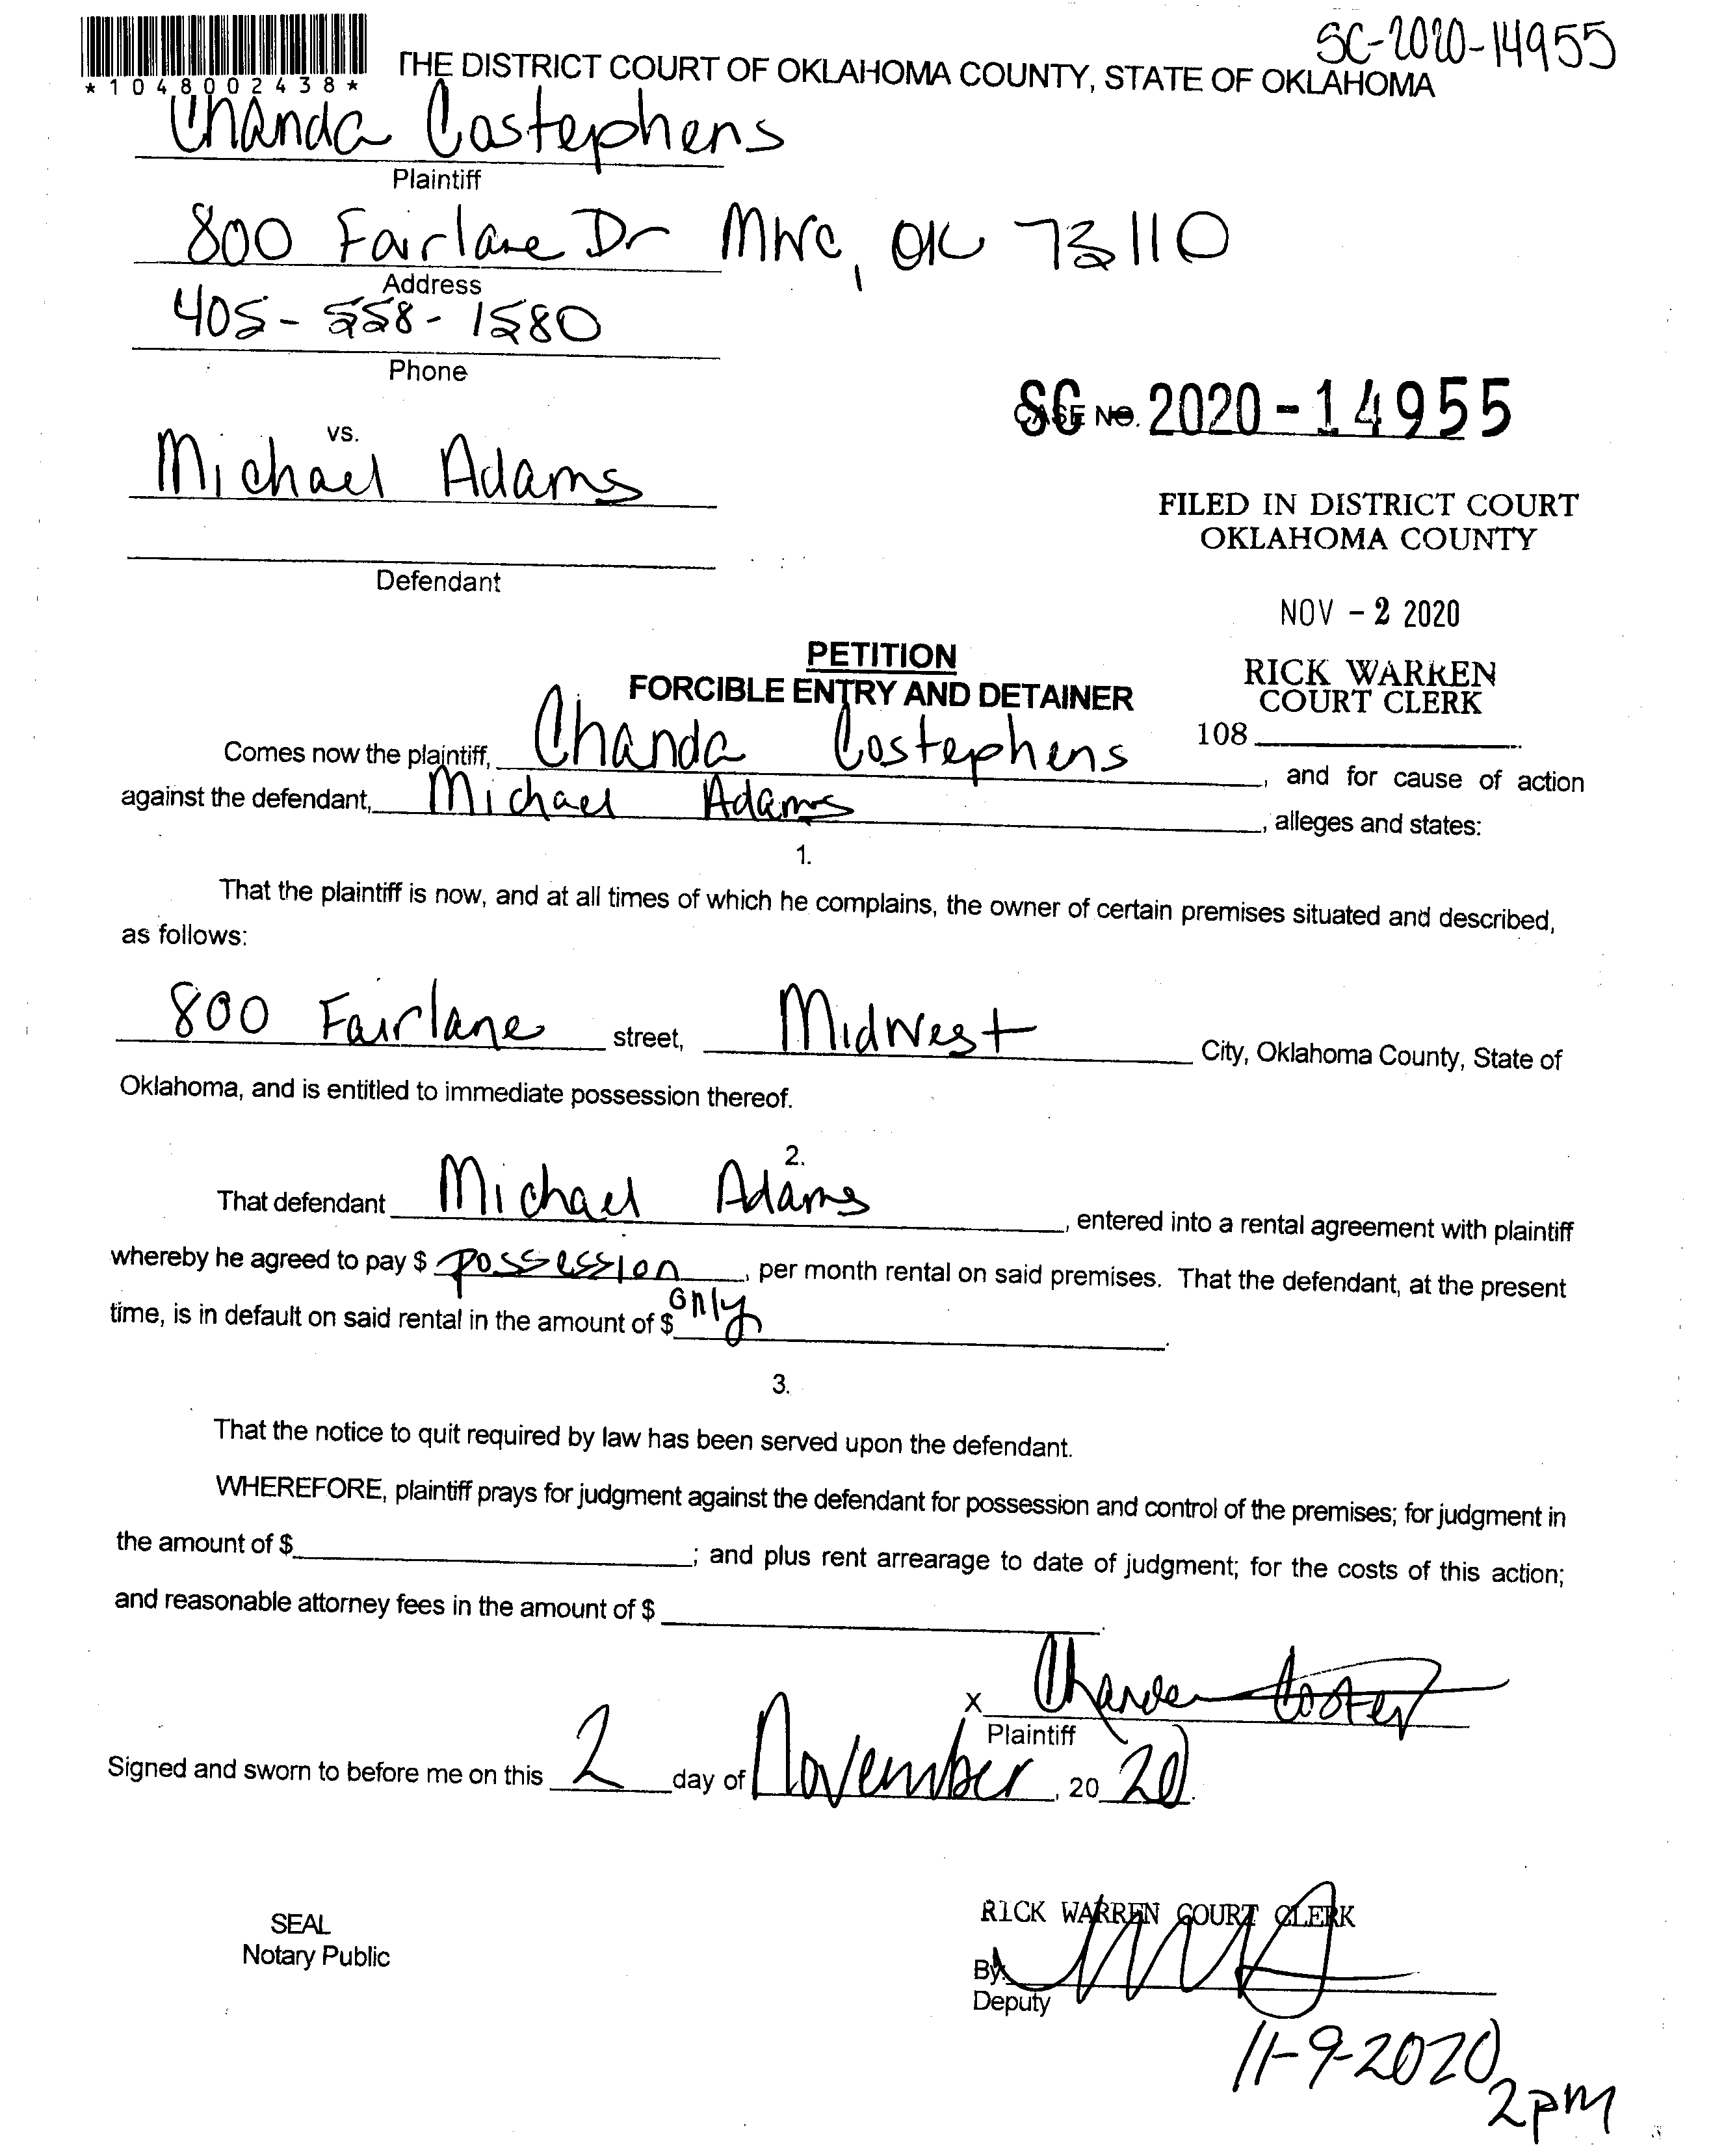 SC-2020-14955
*1048002438*
THE DISTRICT COURT OF OKLAHOMA COUNTY, STATE OF OKLAHOMA
Chanda Costephens
Plaintiff
800 Fairlane Dr MWC, OK 73110
Address
405-558-1580
Phone
SC CASE NO. 2020-14955
vs.
Michael Adams
FILED IN DISTRICT COURT
OKLAHOMA COUNTY
Defendant
NOV - 2 2020
PETITION
FORCIBLE ENTRY AND DETAINER
RICK WARREN
COURT CLERK
108
Comes now the plaintiff, Chanda Costephens, and for cause of action
against the defendant, Michael Adams, alleges and states:
1.
That the plaintiff is now, and at all times of which he complains, the owner of certain premises situated and described,
as follows:
800 Fairlane street, Midwest City, Oklahoma County, State of
Oklahoma, and is entitled to immediate possession thereof.
2.
That defendant Michael Adams, entered into a rental agreement with plaintiff
whereby he agreed to pay $ possession, per month rental on said premises. That the defendant, at the present
time, is in default on said rental in the amount of $ only.
3.
That the notice to quit required by law has been served upon the defendant.
WHEREFORE, plaintiff prays for judgment against the defendant for possession and control of the premises; for judgment in
the amount of $ ; and plus rent arrearage to date of judgment; for the costs of this action;
and reasonable attorney fees in the amount of $ .
X Chanda
Plaintiff
Signed and sworn to before me on this 2 day of November, 20 20.
SEAL
Notary Public
RICK WARREN COURT CLERK
By:
Deputy
11-9-2020
2pm